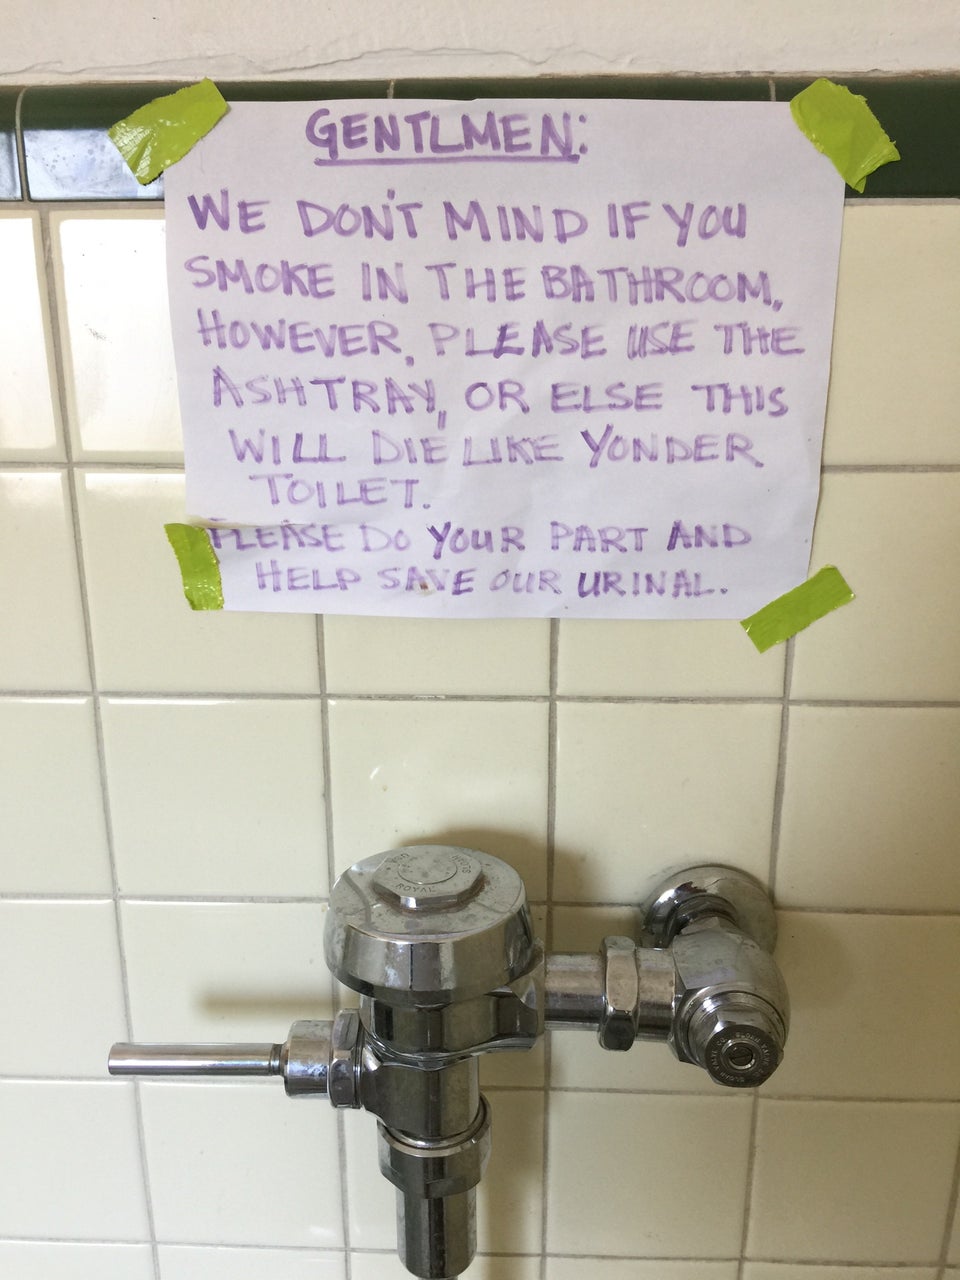 GENTLMEN:
WE DON'T MIND IF YOU
SMOKE IN THE BATHROOM.
HOWEVER, PLEASE USE THE
ASHTRAY, OR ELSE THIS
WILL DIE LIKE YONDER
TOILET.
PLEASE DO YOUR PART AND
HELP SAVE OUR URINAL.
SLOAN
ROYAL
SLOAN VALVE CO.